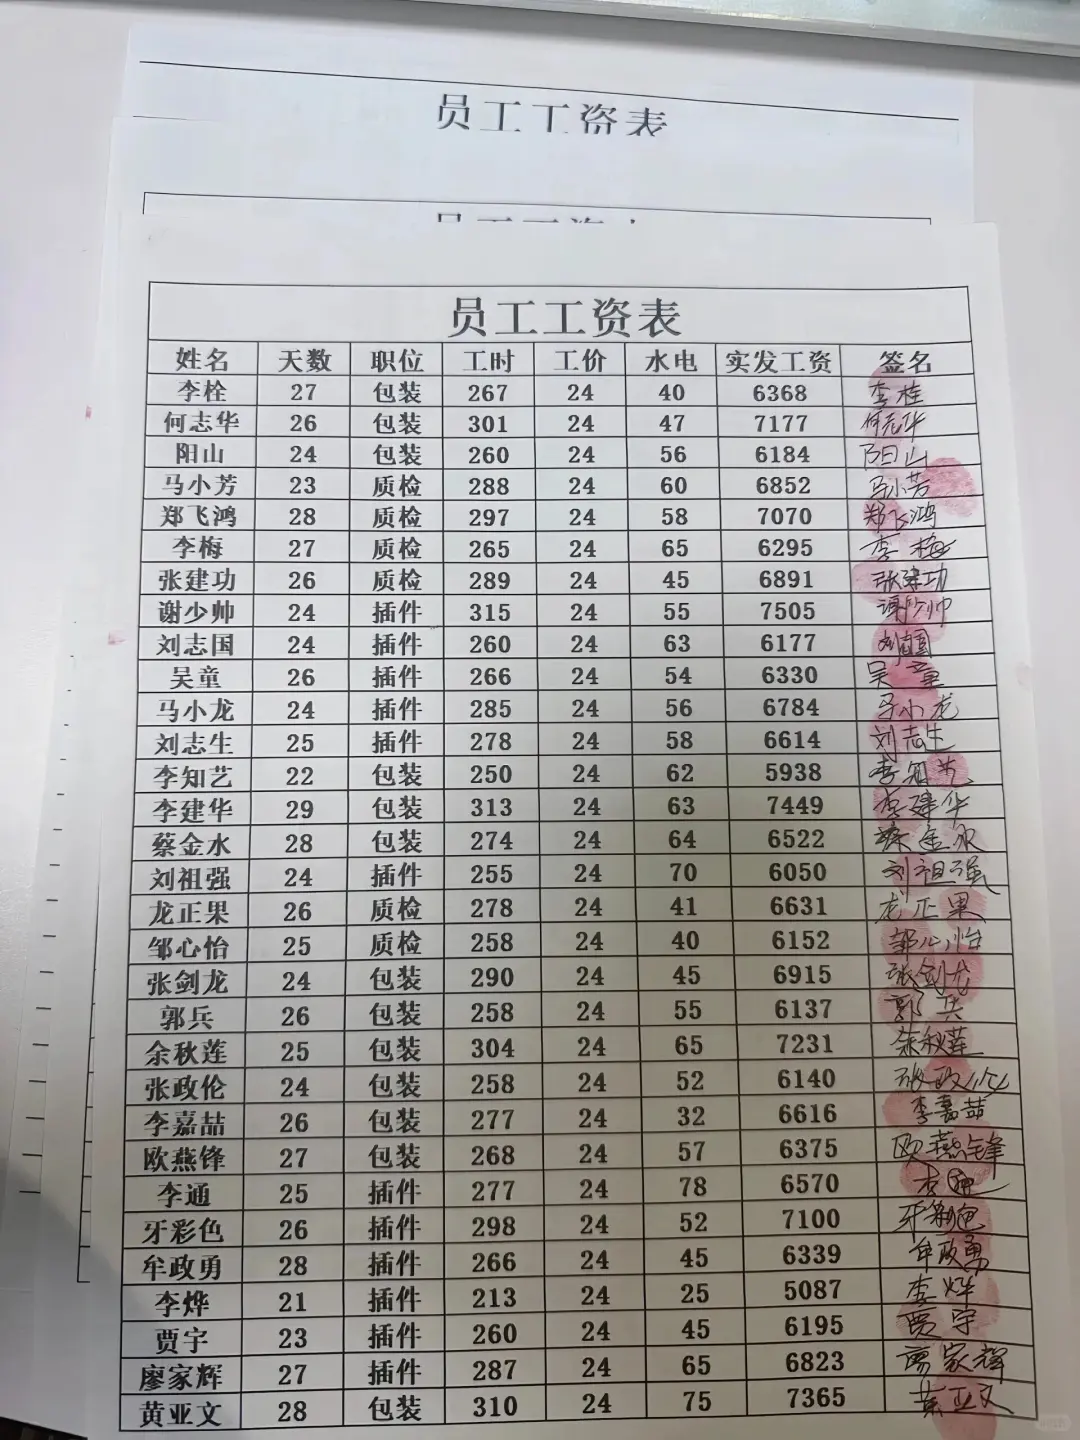 员工工资表
员工工资表
姓名 天数 职位 工时 工价 水电 实发工资 签名
李栓 27 包装 267 24 40 6368 李桂
何志华 26 包装 301 24 47 7177 何志华
阳山 24 包装 260 24 56 6184 阳山
马小芳 23 质检 288 24 60 6852 马小芳
郑飞鸿 28 质检 297 24 58 7070 郑飞鸿
李梅 27 质检 265 24 65 6295 李梅
张建功 26 质检 289 24 45 6891 张建功
谢少帅 24 插件 315 24 55 7505 谢少帅
刘志国 24 插件 260 24 63 6177 刘志国
吴童 26 插件 266 24 54 6330 吴童
马小龙 24 插件 285 24 56 6784 马小龙
刘志生 25 插件 278 24 58 6614 刘志生
李知艺 22 包装 250 24 62 5938 李知艺
李建华 29 包装 313 24 63 7449 李建华
蔡金水 28 包装 274 24 64 6522
刘祖强 24 插件 255 24 70 6050 刘祖强
龙正果 26 质检 278 24 41 6631 龙正果
邹心怡 25 质检 258 24 40 6152 邹心怡
张剑龙 24 包装 290 24 45 6915 张剑龙
郭兵 26 包装 258 24 55 6137 郭兵
余秋莲 25 包装 304 24 65 7231 余秋莲
张政伦 24 包装 258 24 52 6140 张政伦
李嘉喆 26 包装 277 24 32 6616 李嘉喆
欧燕锋 27 包装 268 24 57 6375 欧燕锋
李通 25 插件 277 24 78 6570 李通
牙彩色 26 插件 298 24 52 7100 牙彩色
牟政勇 28 插件 266 24 45 6339 牟政勇
李烨 21 插件 213 24 25 5087 李烨
贾宇 23 插件 260 24 45 6195 贾宇
廖家辉 27 插件 287 24 65 6823 廖家辉
黄亚文 28 包装 310 24 75 7365 黄亚文